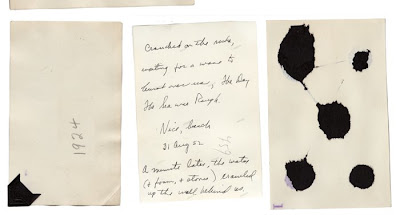 1924
Crouched on the rocks,
waiting for a wave to
the Day
the Sea was Rough.
Nice, beach
31 Aug 52
A minute later, the water
(+ foam, + stones) crawled
up the wall behind us.